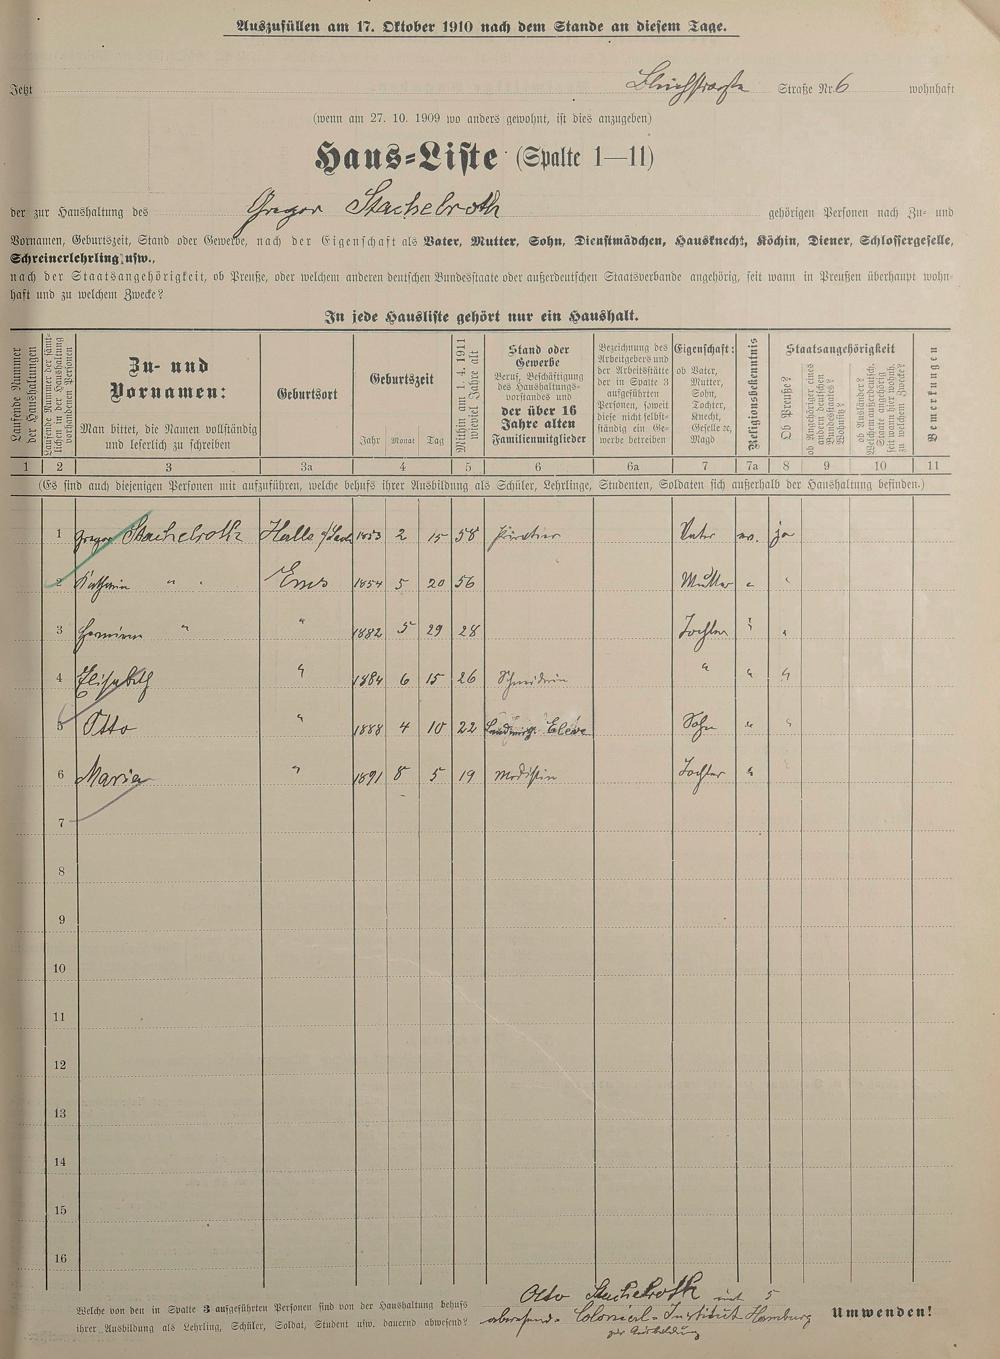 Auszufüllen am 17. Oktober 1910 nach dem Stande an diesem Tage.
Jetzt Bleichstraße Straße Nr. 6 wohnhaft
(wenn am 27. 10. 1909 wo anders gewohnt, ist dies anzugeben)
Haus-Liste (Spalte 1—11)
der zur Haushaltung des Gregor Stachelroth gehörigen Personen nach Zu- und
Vornamen, Geburtszeit, Stand oder Gewerbe, nach der Eigenschaft als Vater, Mutter, Sohn, Dienstmädchen, Hausknecht, Köchin, Diener, Schlossergeselle,
Schreinerlehrling usw.,
nach der Staatsangehörigkeit, ob Preuße, oder welchem anderen deutschen Bundesstaate oder außerdeutschen Staatsverbande angehörig, seit wann in Preußen überhaupt wohn-
haft und zu welchem Zwecke?
In jede Hausliste gehört nur ein Haushalt.
Laufende Nummer der Haushaltungen
Laufende Nummer der sämt-lichen in der Haushaltung vorhandenen Personen
Zu- und
Vornamen:
Man bittet, die Namen vollständig
und leserlich zu schreiben
Geburtsort
Geburtszeit
Jahr Monat Tag
Mithin am 1. 4. 1911 wieviel Jahre alt
Stand oder
Gewerbe
Beruf, Beschäftigung
des Haushaltungs-
vorstandes und
der über 16
Jahre alten
Familienmitglieder
Bezeichnung des
Arbeitgebers und
der Arbeitsstätte
der in Spalte 3
aufgeführten
Personen, soweit
diese nicht selbst-
ständig ein Ge-
werbe betreiben
Eigenschaft:
ob Vater,
Mutter,
Sohn,
Tochter,
Knecht,
Geselle ec,
Magd
Religionsbekenntnis
Staatsangehörigkeit
Ob Preuße?
ob Angehöriger eines andern deutschen Bundesstaates? Wohnsitz?
ob Ausländer? Welchem außerdeutsch. Staate angehörig, seit wann hier wohnh. zu welchem Zwecke?
Bemerkungen
1 2 3 3a 4 5 6 6a 7 7a 8 9 10 11
(Es sind auch diejenigen Personen mit aufzuführen, welche behufs ihrer Ausbildung als Schüler, Lehrlinge, Studenten, Soldaten sich außerhalb der Haushaltung befinden.)
1 Gregor Stachelroth Halle 1853 2 15 58 Privatier Vater ev. ja
2 Katharina " " Ems 1854 5 20 56 Mutter " "
3 Hermine " " 1882 5 29 28 Tochter " "
4 Elisabeth " 1884 6 15 26 Schneiderin " " "
5 Otto " 1888 4 10 22 Landwirtsch. Eleve Sohn " "
6 Maria " 1891 8 5 19 Modistin Tochter "
7
8
9
10
11
12
13
14
15
16
Welche von den in Spalte 3 aufgeführten Personen sind von der Haushaltung behufs
ihrer Ausbildung als Lehrling, Schüler, Soldat, Student usw. dauernd abwesend?
Otto Stachelroth mit 5
abwesend. Colonial-Institut Hamburg
zur Ausbildung
Umwenden!